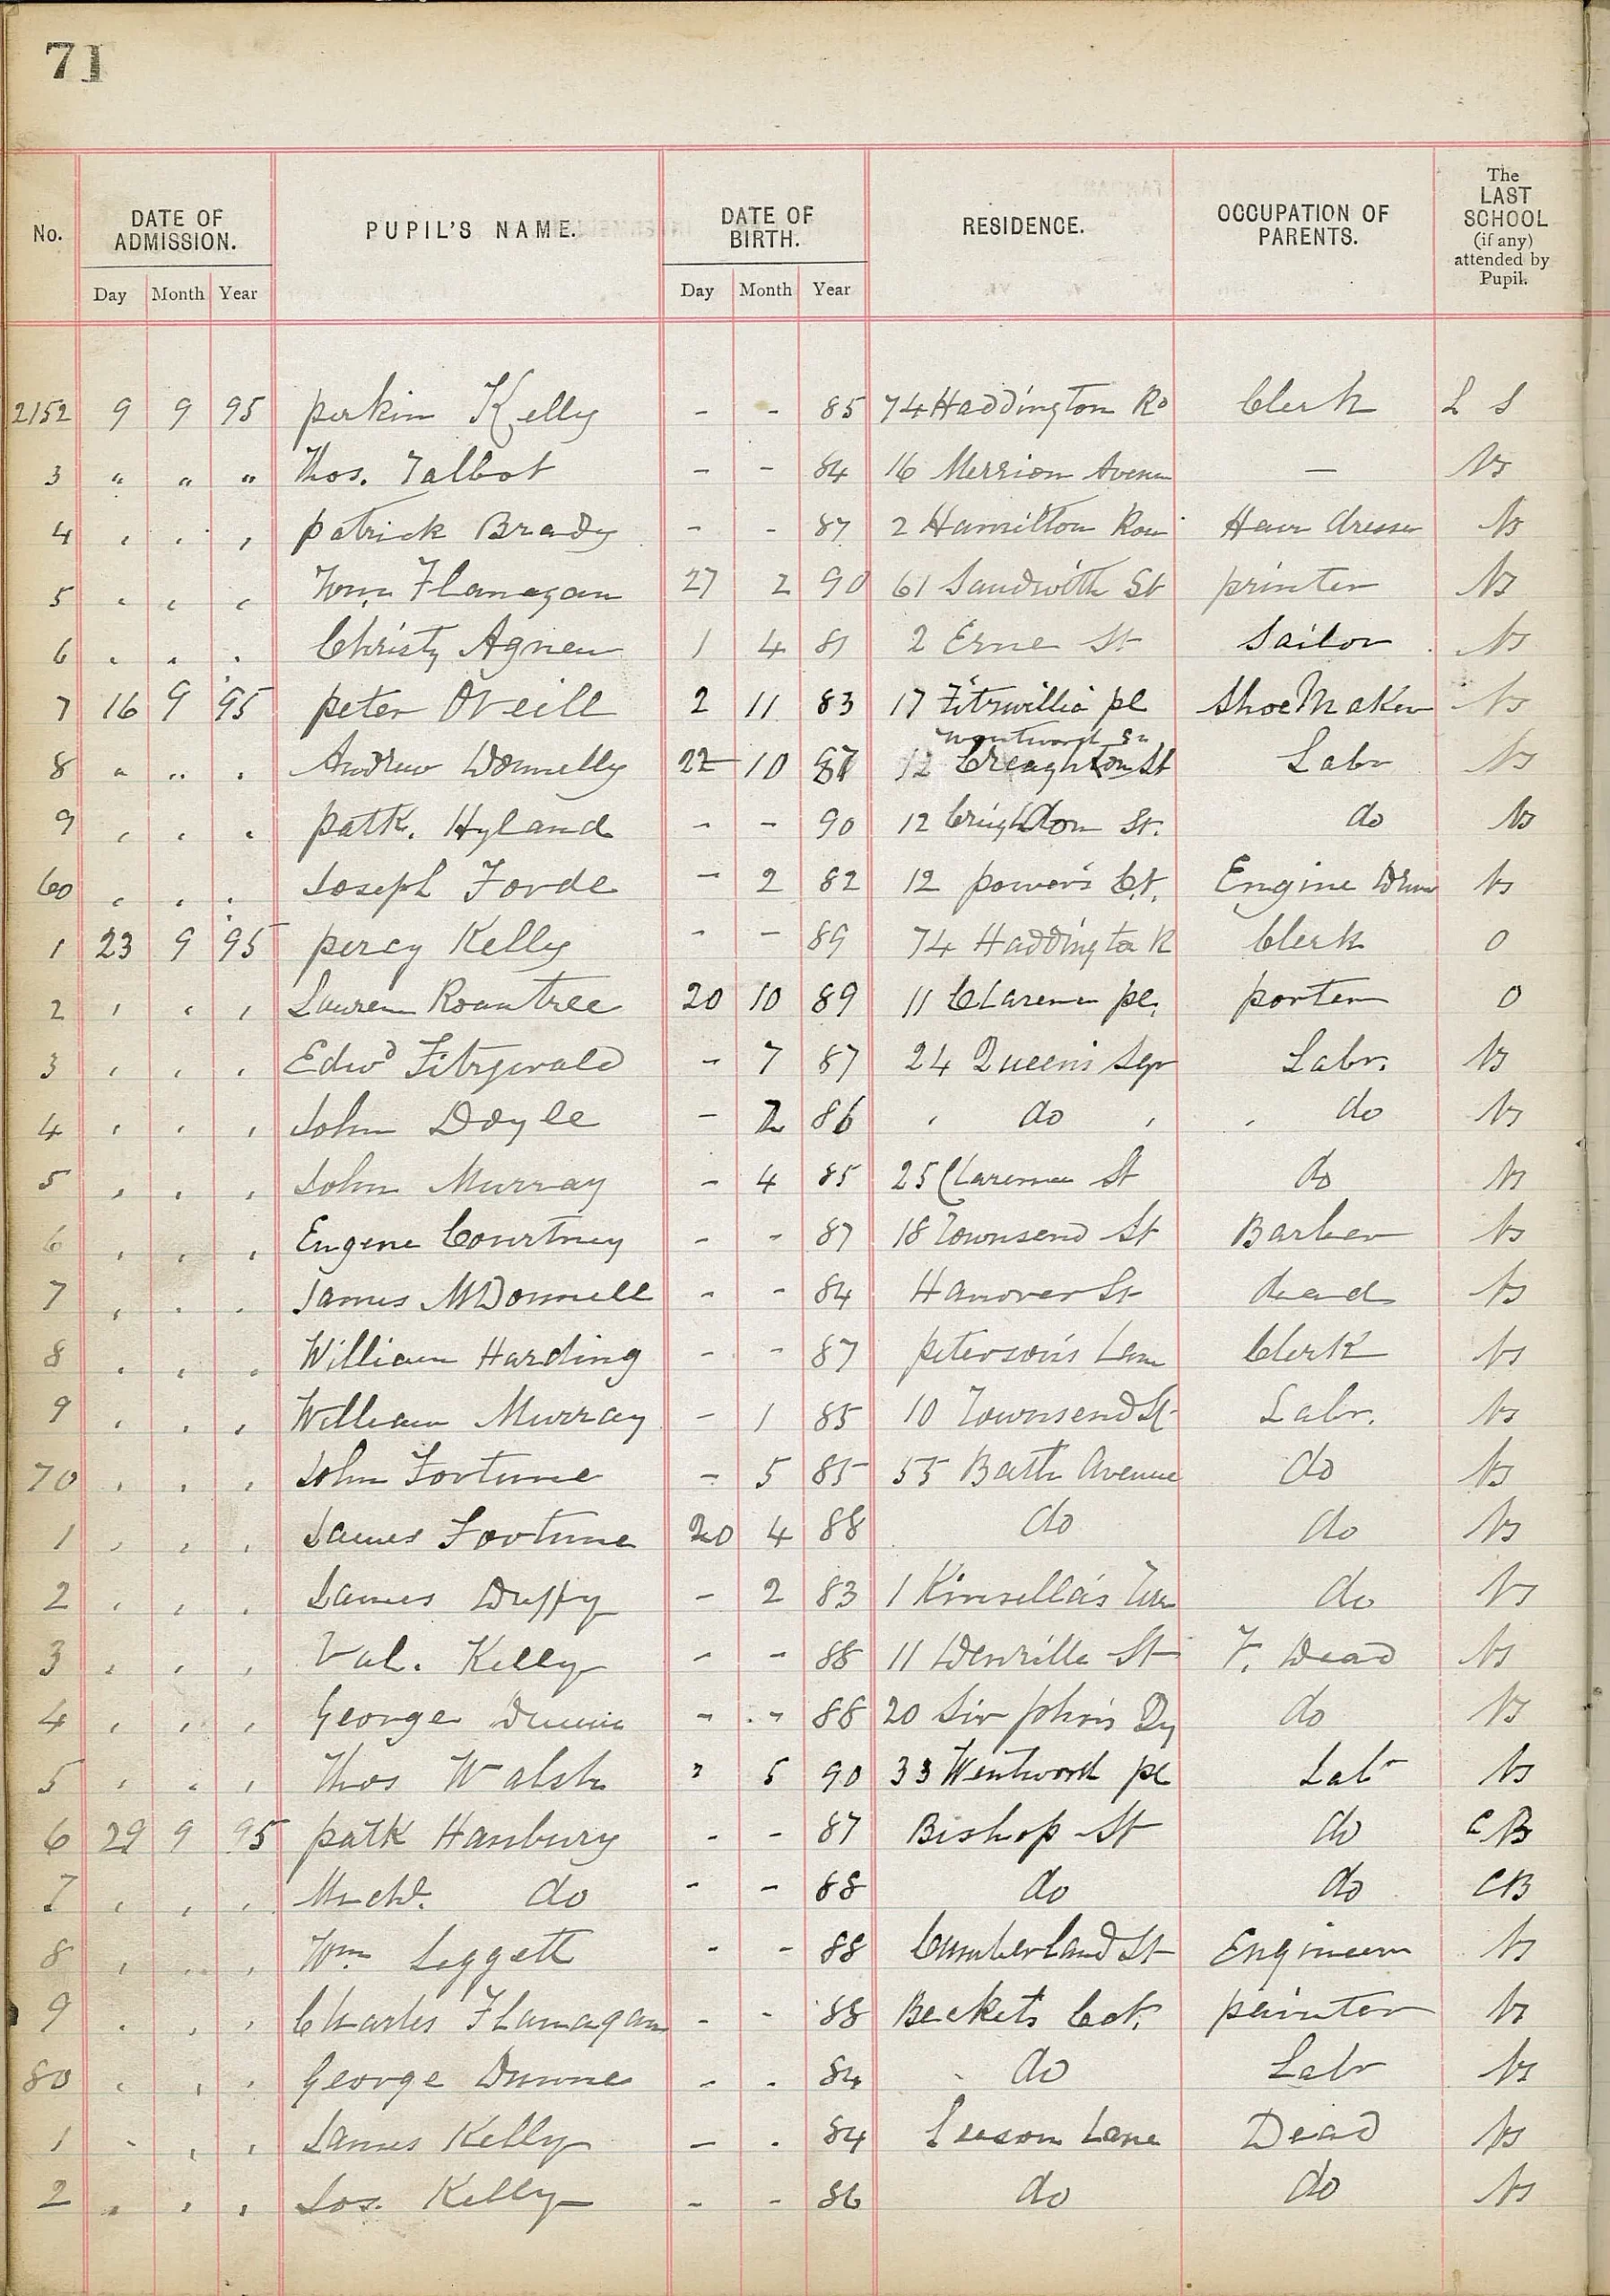 71
No. DATE OF ADMISSION. PUPIL'S NAME. DATE OF BIRTH. RESIDENCE. OCCUPATION OF PARENTS. The LAST SCHOOL (if any) attended by Pupil.
Day Month Year Day Month Year
2152 9 9 95 perkin Kelly - - 85 74 Haddington Rd Clerk L S
3 " " " Thos. Talbot - - 84 16 Merrion Avenu — NS
4 , . , patrick Brady - - 87 2 Hamilton Row Hair dresser NS
5 , , , Wm Flanagan 27 2 90 61 Sandwith St printer NS
6 . . . Christy Agnew 1 4 81 2 Erne St Sailor NS
7 16 9 95 peter O'Neill 2 11 83 17 Fitzwillia pl Shoe Maker NS
8 " " . Andrew Donnelly 22 10 87 12 Creaghton St Labr NS
9 , , . patk. Hyland - - 90 12 Crieghdon St. do NS
60 , , . Joseph Forde - 2 82 12 power's Ct. Engine Driv NS
1 23 9 95 percy Kelly - - 89 74 Haddington R Clerk O
2 , , , Lauren Rountree 20 10 89 11 Claremn pl. porter O
3 , , , Edwd Fitzgerald - 7 87 24 Queen's Sqr Labr. NS
4 , , , John Doyle - 2 86 , do , , do NS
5 , , , John Murray - 4 85 25 Claremce St do NS
6 , , , Eugene Courtney - - 87 18 Townsend St Barber NS
7 , . . James McDonnell - - 84 Hanover St dead NS
8 . , . William Harding - - 87 peterson's Lane Clerk NS
9 , , , William Murray - 1 85 10 Townsend St Labr. NS
70 , , , John Fortune - 5 85 55 Bath Avenue do NS
1 , , , James Fortune 20 4 88 do do NS
2 , , . James Duffy - 2 83 1 Kinsella's do NS
3 , , , Val. Kelly - - 88 11 Denzille St F. Dead NS
4 , , , George Dunne - - 88 20 Sir John's Qy do NS
5 , , , Thos Walsh 5 90 33 Wentworth pl Labr NS
6 29 9 95 patk Hanbury - - 87 Bishop St do CB
7 , , , Michl. do - - 88 do do CB
8 , .. , Wm Leggett - - 88 Cumberland St Engineer NS
9 . , , Charles Flanagan - - 88 Beckets Cot. painter NS
80 , , , George Dunne - . 84 do Labr NS
1 - , , James Kelly - . 84 Leeson Lane Dead NS
2 , , , Jos. Kelly - - 86 do do NS